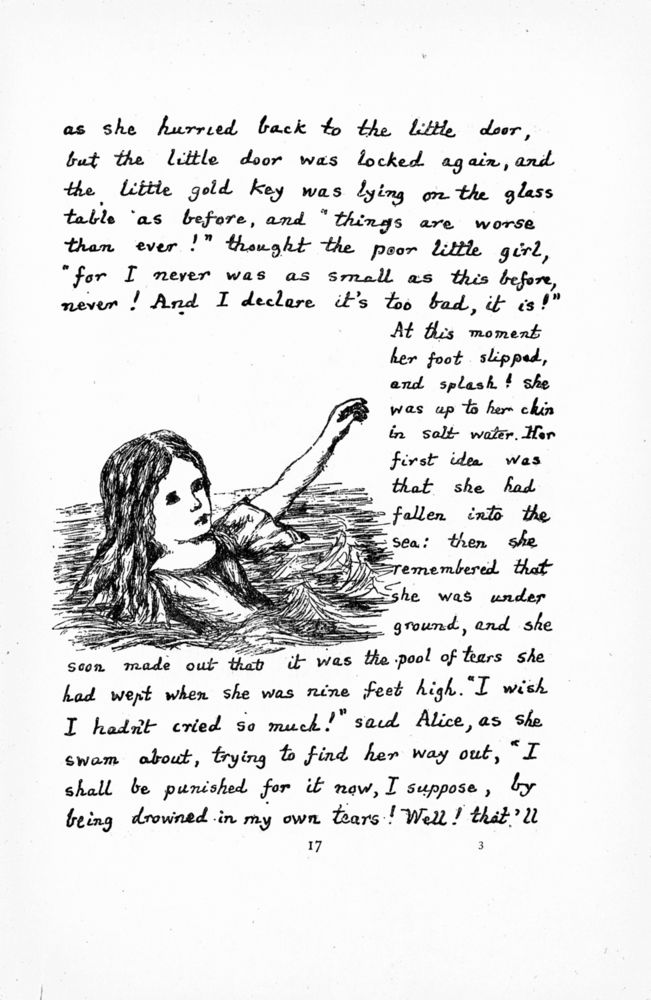 as she hurried back to the little door,
but the little door was locked again, and
the little gold key was lying on the glass
table as before, and "things are worse
than ever!" thought the poor little girl,
"for I never was as small as this before,
never! And I declare it's too bad, it is!"
At this moment
her foot slipped,
and splash! she
was up to her chin
in salt water. Her
first idea was
that she had
fallen into the
sea: then she
remembered that
she was under
ground, and she
soon made out that it was the pool of tears she
had wept when she was nine feet high. "I wish
I hadn't cried so much!" said Alice, as she
swam about, trying to find her way out, "I
shall be punished for it now, I suppose, by
being drowned in my own tears! Well! that'll
17 3